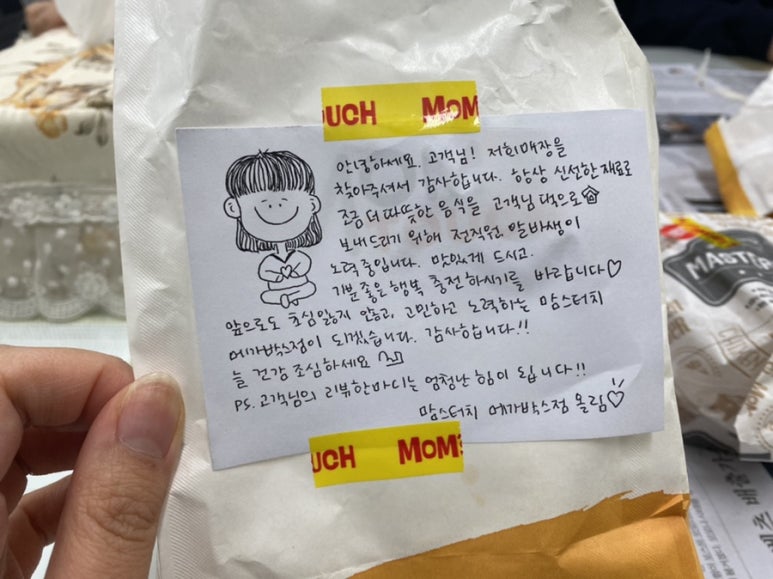 UCH MOM
안녕하세요. 고객님! 저희매장을
찾아주셔서 감사합니다. 항상 신선한 재료로
조금 더 따뜻한 음식을 고객님 댁으로
보내드리기 위해 전직원 알바생이
노력중입니다. 맛있게 드시고.
기분 좋은 행복 충전 하시기를 바랍니다♡
앞으로도 초심 잃지 않고, 고민하고 노력하는 맘스터치
메가박스점이 되겠습니다. 감사합니다!!
늘 건강 조심하세요
PS. 고객님의 리뷰한마디는 엄청난 힘이 됩니다!!
맘스터치 메가박스점 올림♡
UCH MOM'S
MASTER